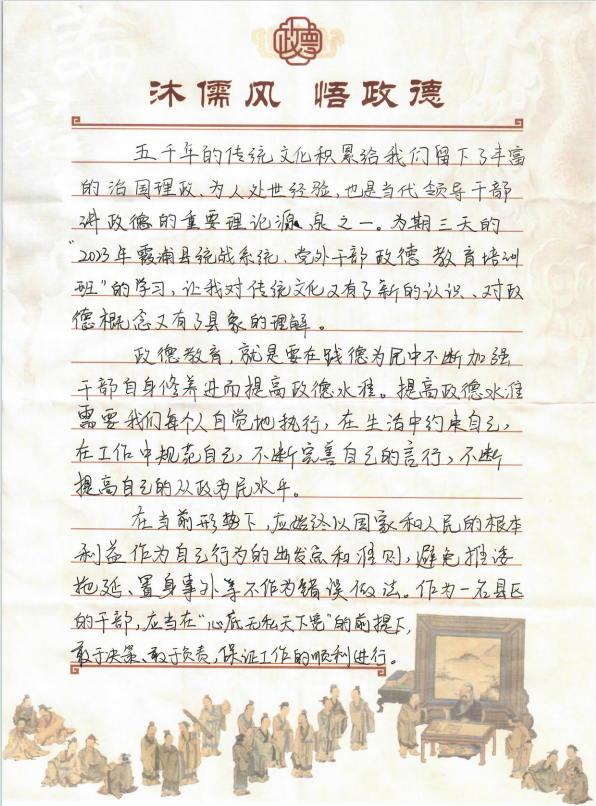 沐儒风 悟政德
五千年的传统文化积累给我们留下了丰富
的治国理政、为人处世经验，也是当代领导干部
讲政德的重要理论源泉之一。为期三天的
“2023年霞浦县统战系统、党外干部政德教育培训
班”的学习，让我对传统文化又有了新的认识、对政
德概念又有了具象的理解。
政德教育，就是要在践德为民中不断加强
干部自身修养进而提高政德水准。提高政德水准
需要我们每个人自觉地执行，在生活中约束自己，
在工作中规范自己，不断完善自己的言行，不断
提高自己的从政为民水平。
在当前形势下，应始终以国家和人民的根本
利益作为自己行为的出发点和准则，避免推诿
拖延、置身事外等不作为错误做法。作为一名县区
的干部，应当在“心底无私天下宽”的前提下，
敢于决策、敢于负责，保证工作的顺利进行。